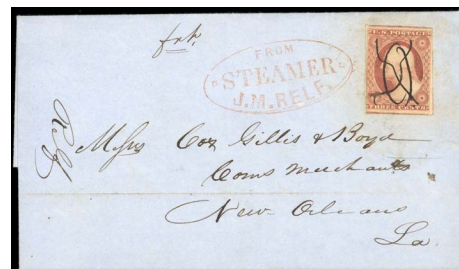 frk
FROM
STEAMER
J.M. RELF.
U.S. POSTAGE
THREE CENTS
Messrs Cox Gillis & Boyd
Coms Merchants
New Orleans
La.